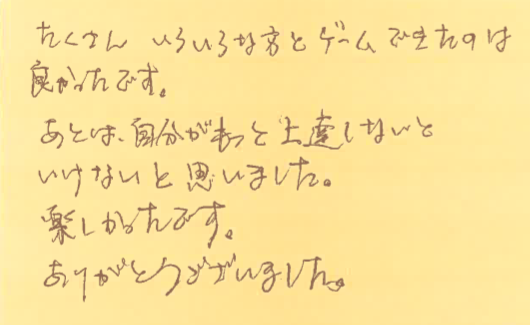 たくさん いろいろな方とゲームできたのは
良かったです。
あとは、自分がもっと上達しないと
いけないと思いました。
楽しかったです。
ありがとうございました。